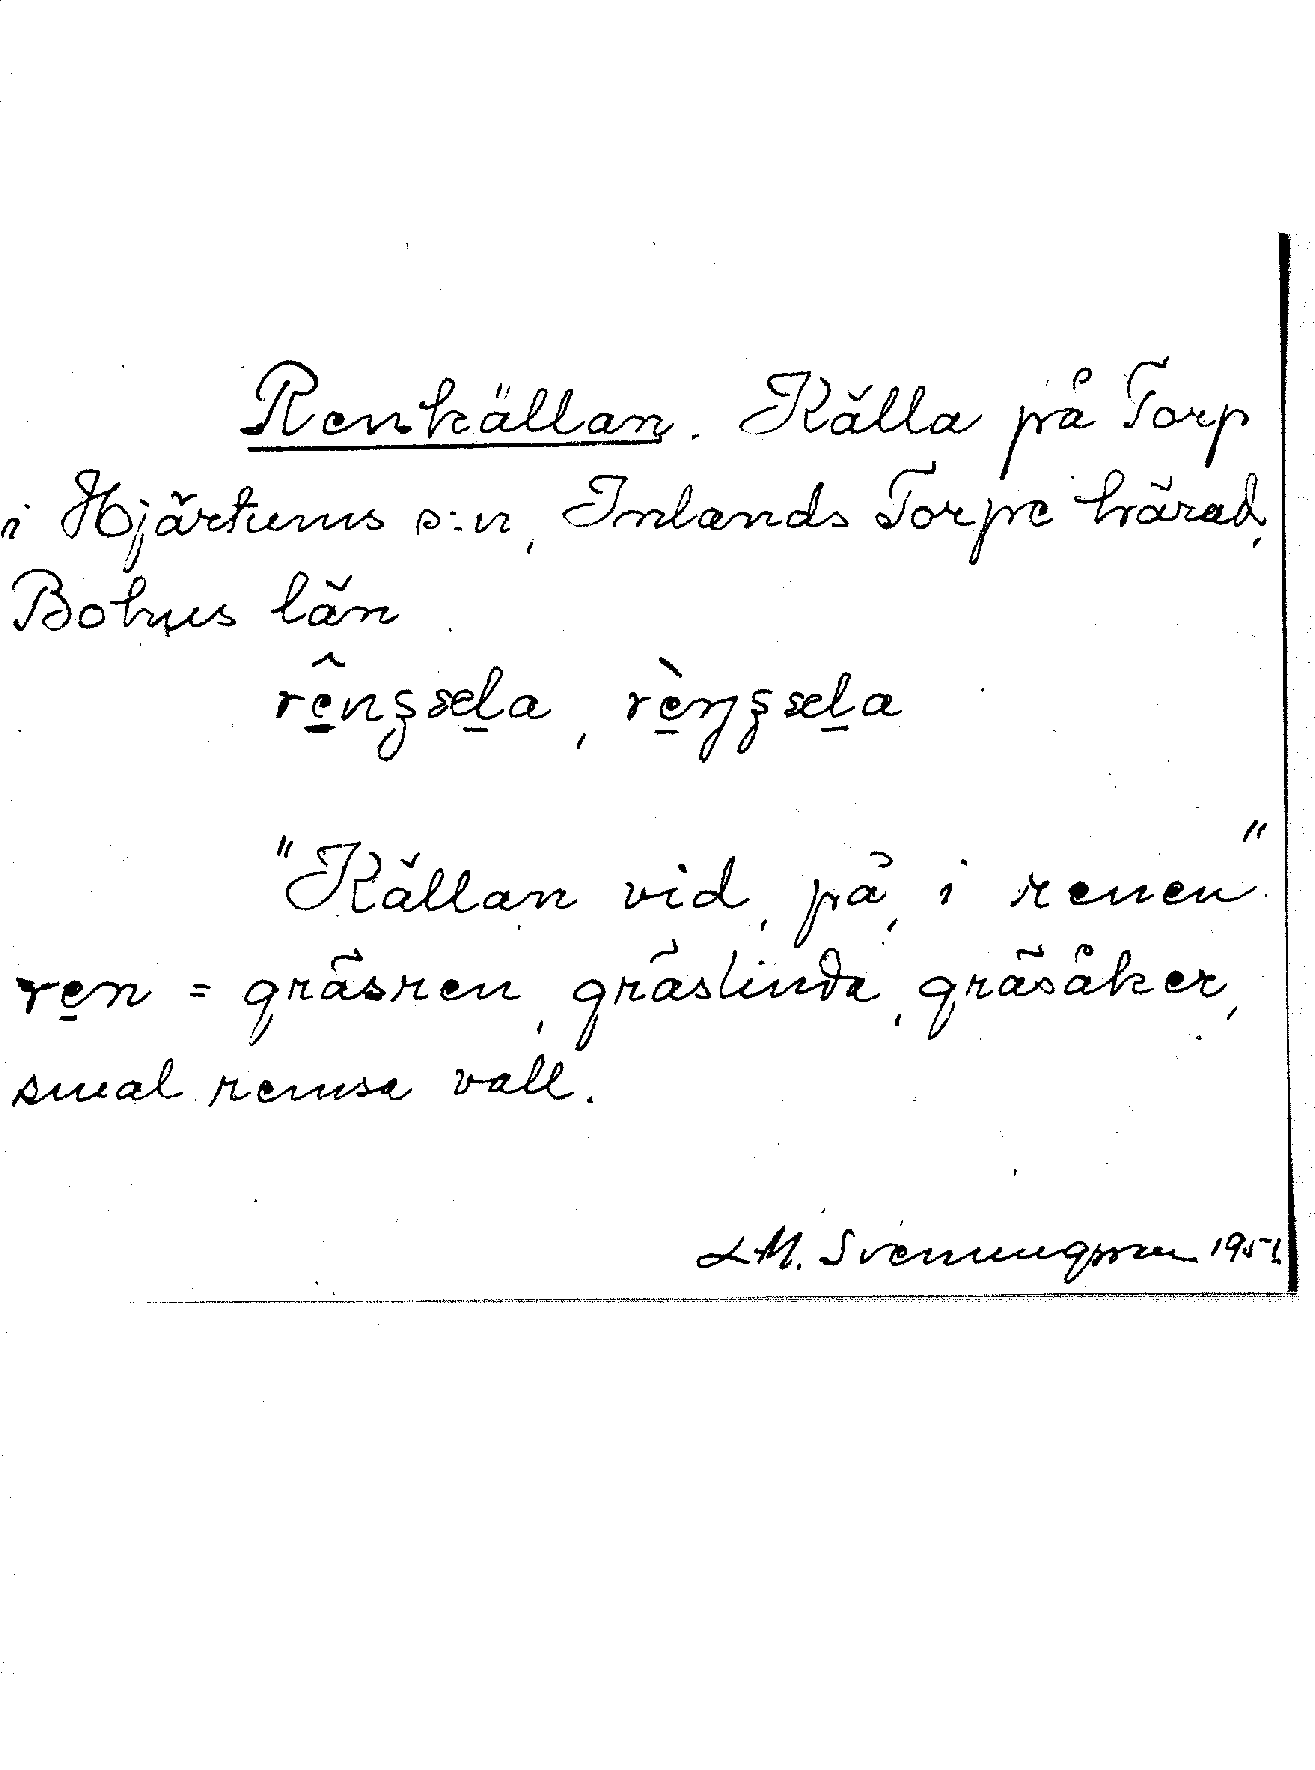 Renkällan. Källa på Torp
i Hjärtums s:n, Inlands Torpe härad,
Bohus län
"Källan vid, på, i renen"
ren = gräsren, gräslinda, gräsåker,
smal remsa vall.
LM. Svenungsson 1951